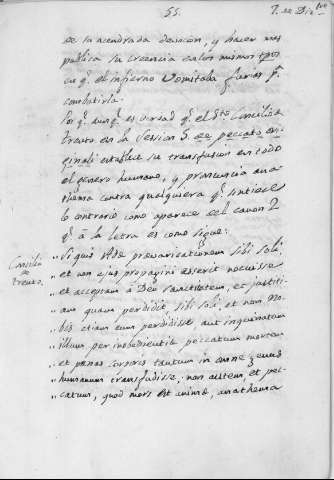 55.
7. de Dic.bre
de su acendrada devocion, y hacer mas
publica su creencia en los mismos tpos
en q.e el infierno vomitaba furias p.a
combatirla.
Por q.e aunq.e es verdad q.e el S.to Concilio
Trento en la Session 5. de peccato ori-
ginali establece su transfusion en todo
el genero humano, y pronuncia ana-
thema contra qualquiera q.e sintiere
lo contrario como aparece del canon 2
q.e a la letra es como sigue:
Concilio
de
Trento.
„ Si quis Adæ prevaricationem sibi soli
„ et non ejus propagini asserit nocuisse
„ et acceptam á Deo sanctitatem, et justiti-
„ am quam perdidit, sibi soli, et non no-
„ bis etiam eum perdidisse aut inquinatum
„ illum per inobedientiæ peccatum mortem
„ et pænas corporis tantum in omne genus
„ humanum transfudisse, non autem et pec-
„ catum, quod mors est animæ, anathema